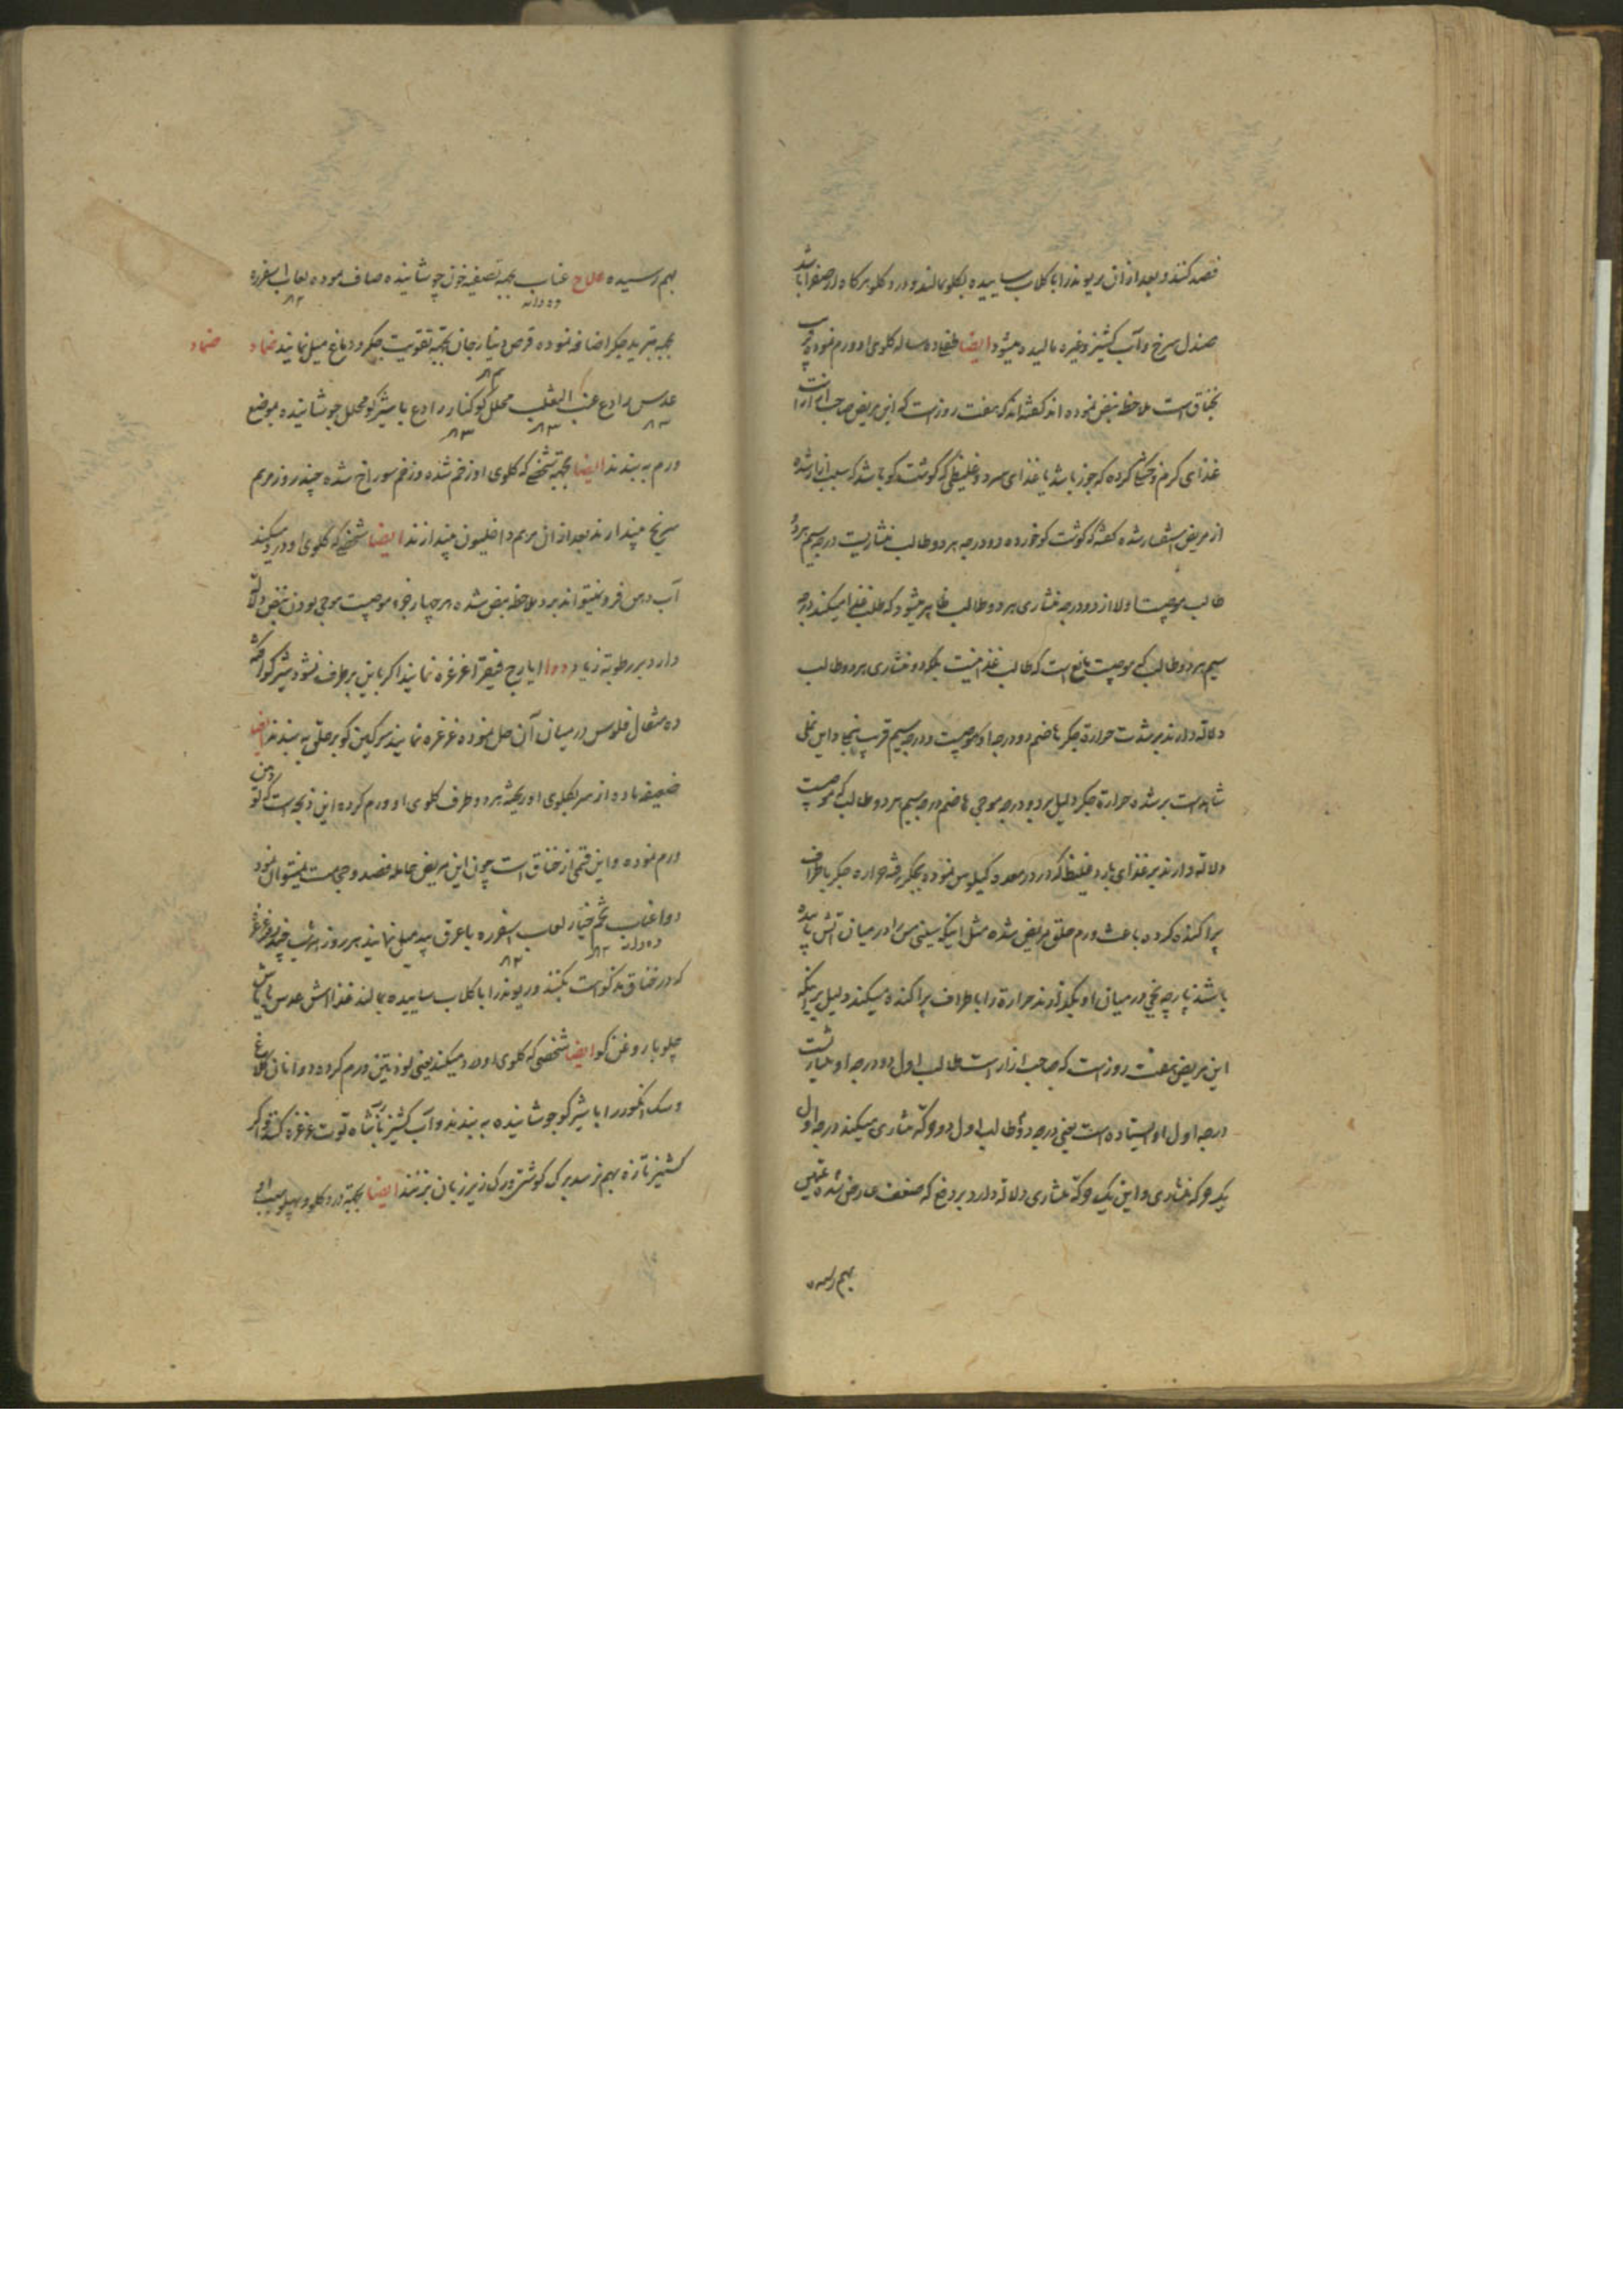 فصد کنند و بعد از آن ریوند را با کلاب ساییده بکلو بمالند و درد کلو هرکاه از صفرا باشد
صندل سرخ و آب کشنیز و غیره مالیده میشود ایضا طفلی ده ساله کلوی او ورم نموده قریب
بخناق است ملاحظه نبض نموده اند کفته اند که هفت روز است که این مریض صاحب
غذای کرم و خشک کرده که جوز باشد یا غذای سرد و غلیظی که کوشت کو باشد که سبب ازار شده
از مریض استفسار شده کفته که کوشت کو خورده دو درجه هر دو طالب منشاریست درجه سیم هر دو
طالب موجیست اولا از دو درجه منشاری هر دو طالب ظاهر میشود که طلب غذا میکند درجه
سیم هر دو طالب که موجیست مانع است که طالب غذا نیست بلکه دو منشاری هر دو طالب
دلالة دارند بر شدت حرارة جکر هاضم دو درجه او موجیست و درجه سیم قریب بنجا و این نملی
شاهد است بر شدة حرارة جکر دلیل بر دو درجه موجی هاضم درجه سیم هر دو طالب که موجیست
دلالة دارند بر غذای بارد غلیظ که در معده کیلوس نموده بجکر رفته حرارة جکر باطراف
پراکنده کرده باعث ورم حلق مریض شده مثل اینکه سینی مس را در میان آتش
باشد پارچه یخی در میان او بگذارند حرارة را باطراف پراکنده میکند دلیل بر اینکه
این مریض هفت روز است که صاحب ازار است طالب اول دو درجه او منشاریست
درجه اول او ایستاده است یعنی درجه دوم طالب اول دو حرکة منشاری میکند درجه اول
یک حرکة منشاری و این یک حرکة منشاری دلالة دارد بر دماغ که ضعف عارض شده
بهم رسیده
بهم رسیده علاج عناب بجهة تصفیه خون جوشانیده صاف نموده لعاب اسفرزه
ده دانه
بجهة تبرید جکر اضافه نموده قرص دینار جان بجهة تقویت جکر و دماغ میل نمایند ضماد
ضماد
عدس رادع عنب الثعلب محلل کوکنار رادع با شیر کو محلل جوشانیده بموضع
ورم به بندند ایضا بجهة شخصی که کلوی او زخم شده و زخم سوراخ شده چند روز مرهم
سرنج میندازند بعد از آن مرهم داخلیون میندازند ایضا شخصی که کلوی او درد میکند
آب دهن فرو نمیتواند برد ملاحظه نبض شده هر چهار جزو موجیست موجی بودن نبض دلالة
دارد بر رطوبة زیاد دوا ایارج فیقرا غرغره نمایند اکر باین برطرف نشود شیر کو
ده مثقال فلوس در میان آن حل نموده غرغره نمایند سرکین کو بر حلق به بندند ایضا
ضعیفه ماده از سر بکلوی او ریخته هر دو طرف کلوی او ورم کرده این ذبحه است که
ورم نموده و این قسمی از خناق است چون این مریض حامله فصد و حجامت نمیتوان نمود
دوا عناب تخم خیار لعاب اسفرزه با عرق بید میل نمایند هر روز هر شب چند نوبت غرغره
ده دانه
که در خناق مذکور است بکنند و ریوند را با کلاب ساییده بمالند غذا آش عدس یا ماش
چلو با روغن کو ایضا شخصی که کلوی او درد میکند یعنی لوزتین ورم کرده دوا
و سک انکور را با شیر کو جوشانیده به بندند و آب کشنیز با شاه توت غرغره کنند و اکر
کشنیز تازه بهم نرسد برک کوشتی و رک زیر زبان بزنند ایضا بجهة درد کلو و پهلو